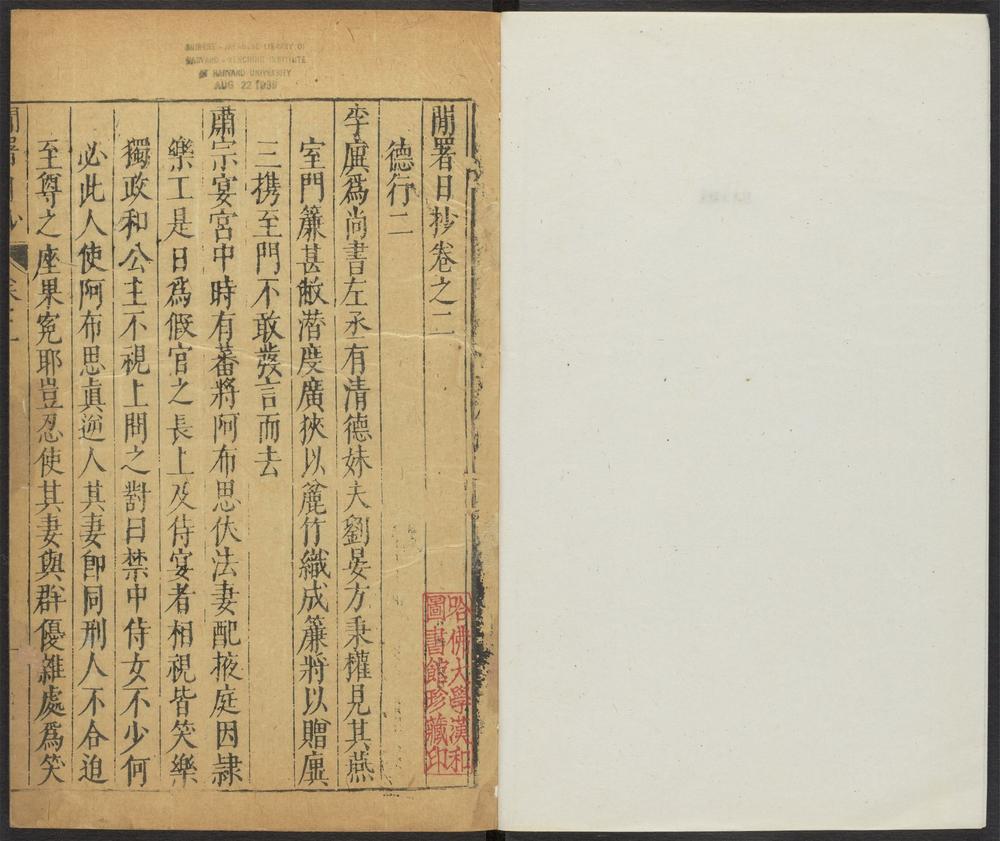 閒署日抄卷之二
德行二
李廙爲尚書左丞有清德妹夫劉晏方秉權見其燕
室門簾甚敝潛度廣狹以麄竹織成簾將以贈廙
三携至門不敢發言而去
肅宗宴宮中時有蕃將阿布思伏法妻配掖庭因隷
樂工是日爲假官之長上及侍宴者相視皆笑樂
獨政和公主不視上問之對曰禁中侍女不少何
必此人使阿布思眞逆人其妻卽同刑人不合迫
至尊之座果寃耶豈忍使其妻與群優雜處爲笑
哈佛大學漢和
圖書館珍藏印
CHINESE - JAPANESE LIBRARY OF
HARVARD - YENCHING INSTITUTE
AT HARVARD UNIVERSITY
AUG 22 1939